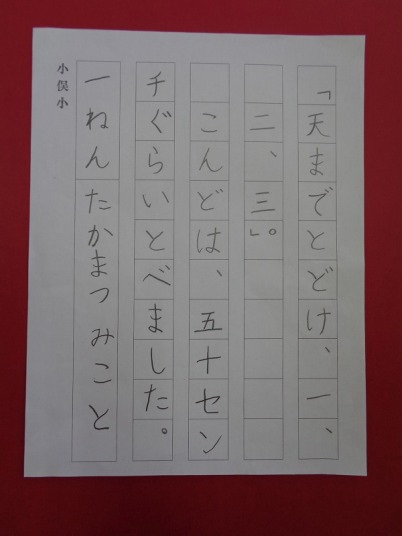 「天までとどけ、一、
二、三。」
こんどは、五十セン
チぐらいとべました。
一ねん たかまつ みこと
小俣小